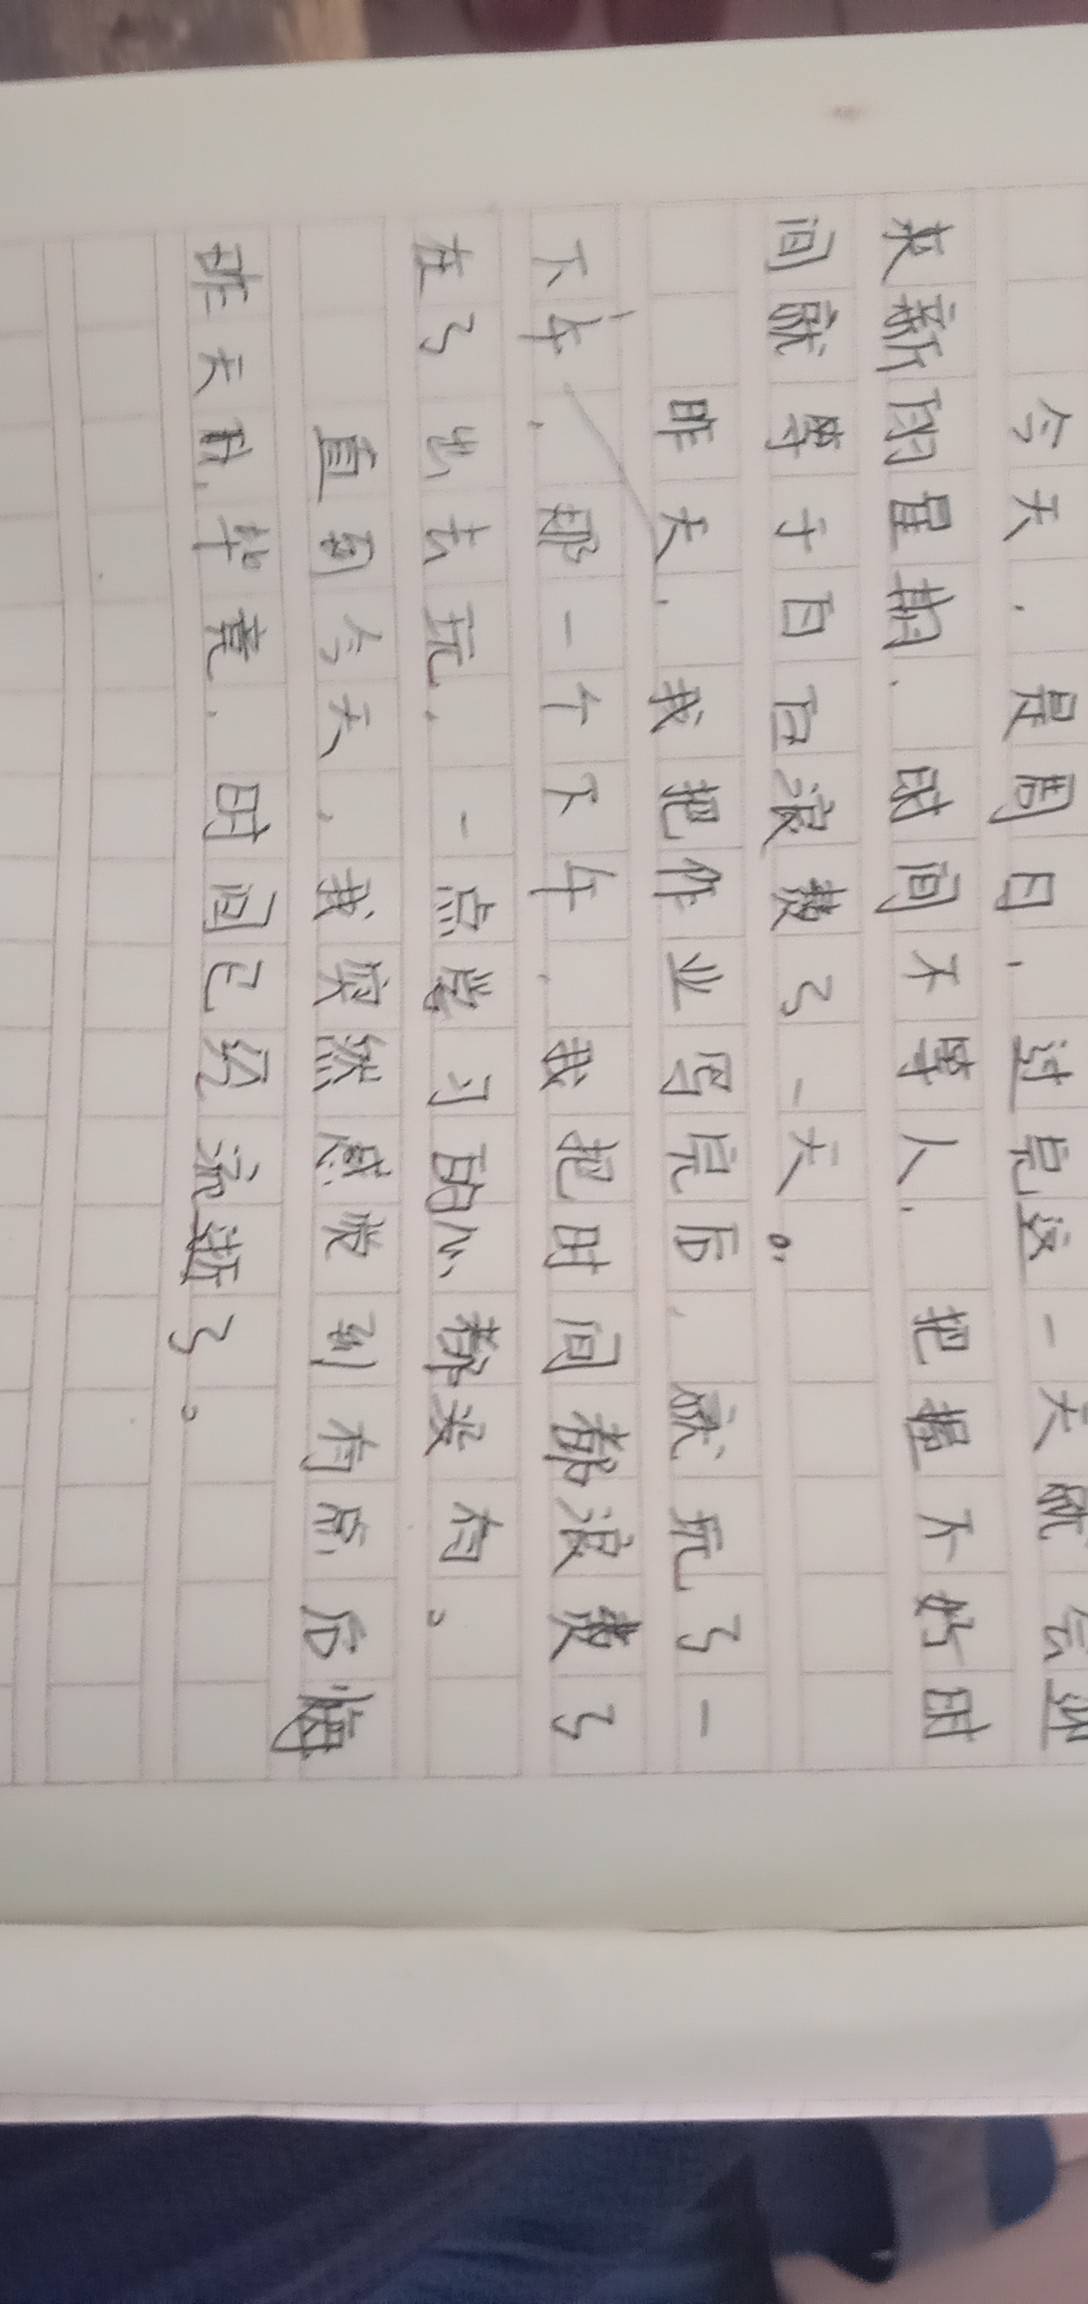 今天，是周日，过完这一天就会迎
来新的星期，时间不等人，把握不好时
间就等于白白浪费了一天。
昨天，我把作业写完后，就玩了一
下午，那一个下午，我把时间都浪费了
在了出去玩，一点学习的心都没有。
直到今天，我突然感觉到有点后悔
昨天的，毕竟，时间已经流逝了。